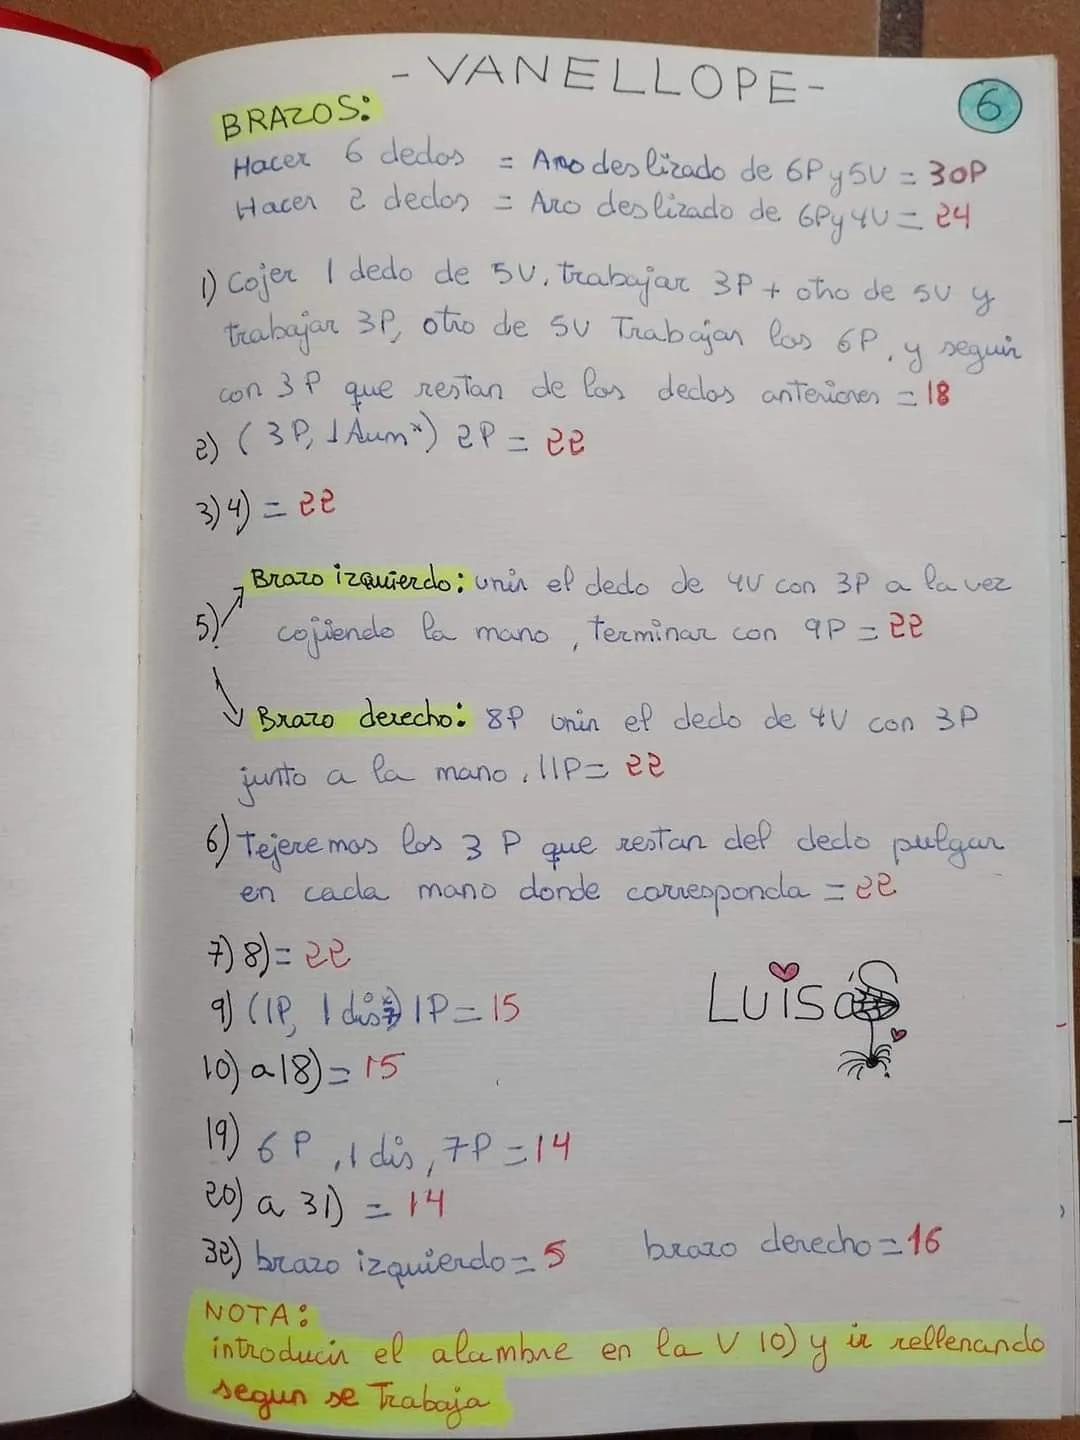 - VANELLOPE -
6
BRAZOS:
Hacer 6 dedos = Aro deslizado de 6P y 5V = 30P
Hacer 2 dedos = Aro deslizado de 6P y 4V = 24
1) Cojer 1 dedo de 5V, trabajar 3P + otro de 5V y
trabajar 3P, otro de 5V Trabajar los 6P, y seguir
con 3P que restan de los dedos anteriores = 18
2) (3P, 1 Aum*) 2P = 22
3) 4) = 22
5) Brazo izquierdo: unir el dedo de 4V con 3P a la vez
cojiendo la mano, terminar con 9P = 22
Brazo derecho: 8P unir el dedo de 4V con 3P
junto a la mano, 11P = 22
6) Tejeremos los 3 P que restan del dedo pulgar
en cada mano donde corresponda = 22
7) 8) = 22
9) (1P, 1 dis*7) 1P = 15
LUISA'S
10) a 18) = 15
19) 6P, 1 dis, 7P = 14
20) a 31) = 14
32) brazo izquierdo = 5 brazo derecho = 16
NOTA:
introducir el alambre en la V 10) y ir rellenando
segun se Trabaja